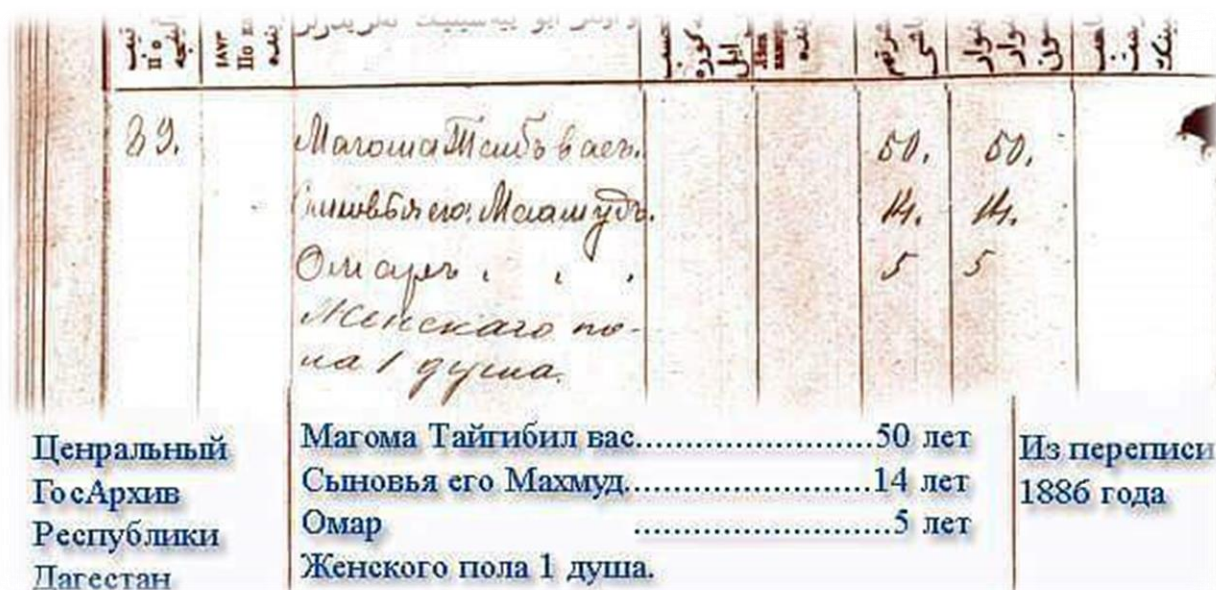 По
По
39. Магома Таибъ васъ. 50. 50.
Сыновья его: Махмудъ. 14. 14.
Омаръ 5 5
Женскаго по-
ла 1 душа.
Ценральный
ГосАрхив
Республики
Дагестан
Магома Тайгибил вас.......................50 лет
Сыновья его Махмуд.......................14 лет
Омар .......................5 лет
Женского пола 1 душа.
Из переписи
1886 года